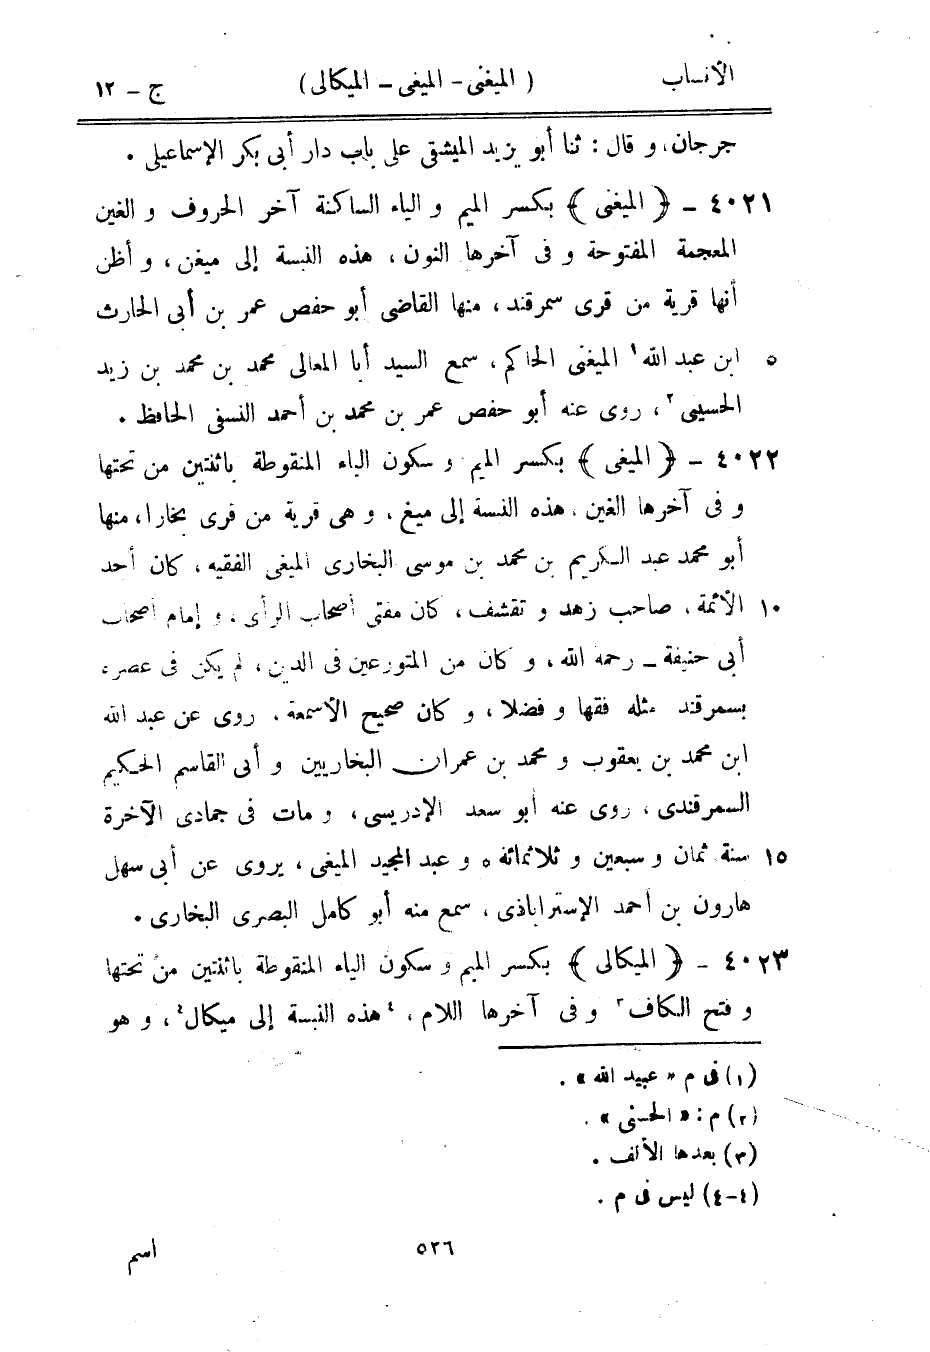 الأنساب ( الميغنى - الميغى - الميكالى ) ج - ١٢
جرجان، و قال : ثنا أبو يزيد الميشقى على باب دار أبى بكر الإسماعيلى .
٤٠٢١ - ﴿ الميغنى ﴾ بكسر الميم و الياء الساكنة آخر الحروف و الغين
المعجمة المفتوحة و فى آخرها النون ، هذه النسبة إلى ميغن ، و أظن
أنها قرية من قرى سمرقند ، منها القاضى أبو حفص عمر بن أبى الحارث
٥ ابن عبد الله ١ الميغنى الحاكم ، سمع السيد أبا المعالى محمد بن محمد بن زيد
الحسينى ٢ ، روى عنه أبو حفص عمر بن محمد بن أحمد النسفى الحافظ .
٤٠٢٢ - ﴿ الميغى ﴾ بكسر الميم و سكون الياء المنقوطة باثنتين من تحتها
و فى آخرها الغين ، هذه النسبة إلى ميغ ، و هى قرية من قرى بخارا ، منها
أبو محمد عبد الكريم بن محمد بن موسى البخارى الميغى الفقيه ، كان أحد
١٠ الأئمة ، صاحب زهد و تقشف ، كان مفتى أصحاب الرأى ، و إمام أصحاب
أبى حنيفة - رحمه الله ، و كان من المتورعين فى الدين ، لم يكن فى عصره
بسمرقند مثله فقها و فضلا ، و كان صحيح الأسمعة . روى عن عبد الله
ابن محمد بن يعقوب و محمد بن عمران البخاريين و أبى القاسم الحكيم
السمرقندى ، روى عنه أبو سعد الإدريسى ، و مات فى جمادى الآخرة
١٥ سنة ثمان و سبعين و ثلاثمائة ه و عبد المجيد الميغى ، يروى عن أبى سهل
هارون بن أحمد الإستراباذى ، سمع منه أبو كامل البصرى البخارى .
٤٠٢٣ - ﴿ الميكالى ﴾ بكسر الميم و سكون الياء المنقوطة باثنتين من تحتها
و فتح الكاف ٣ و فى آخرها اللام ، ٤ هذه النسبة إلى ميكال ٤ ، و هو
(١) فى م « عبيد الله » .
(٢) م : « الحسنى » .
(٣) بعدها الألف .
(٤-٤) ليس فى م .
٥٢٦ اسم